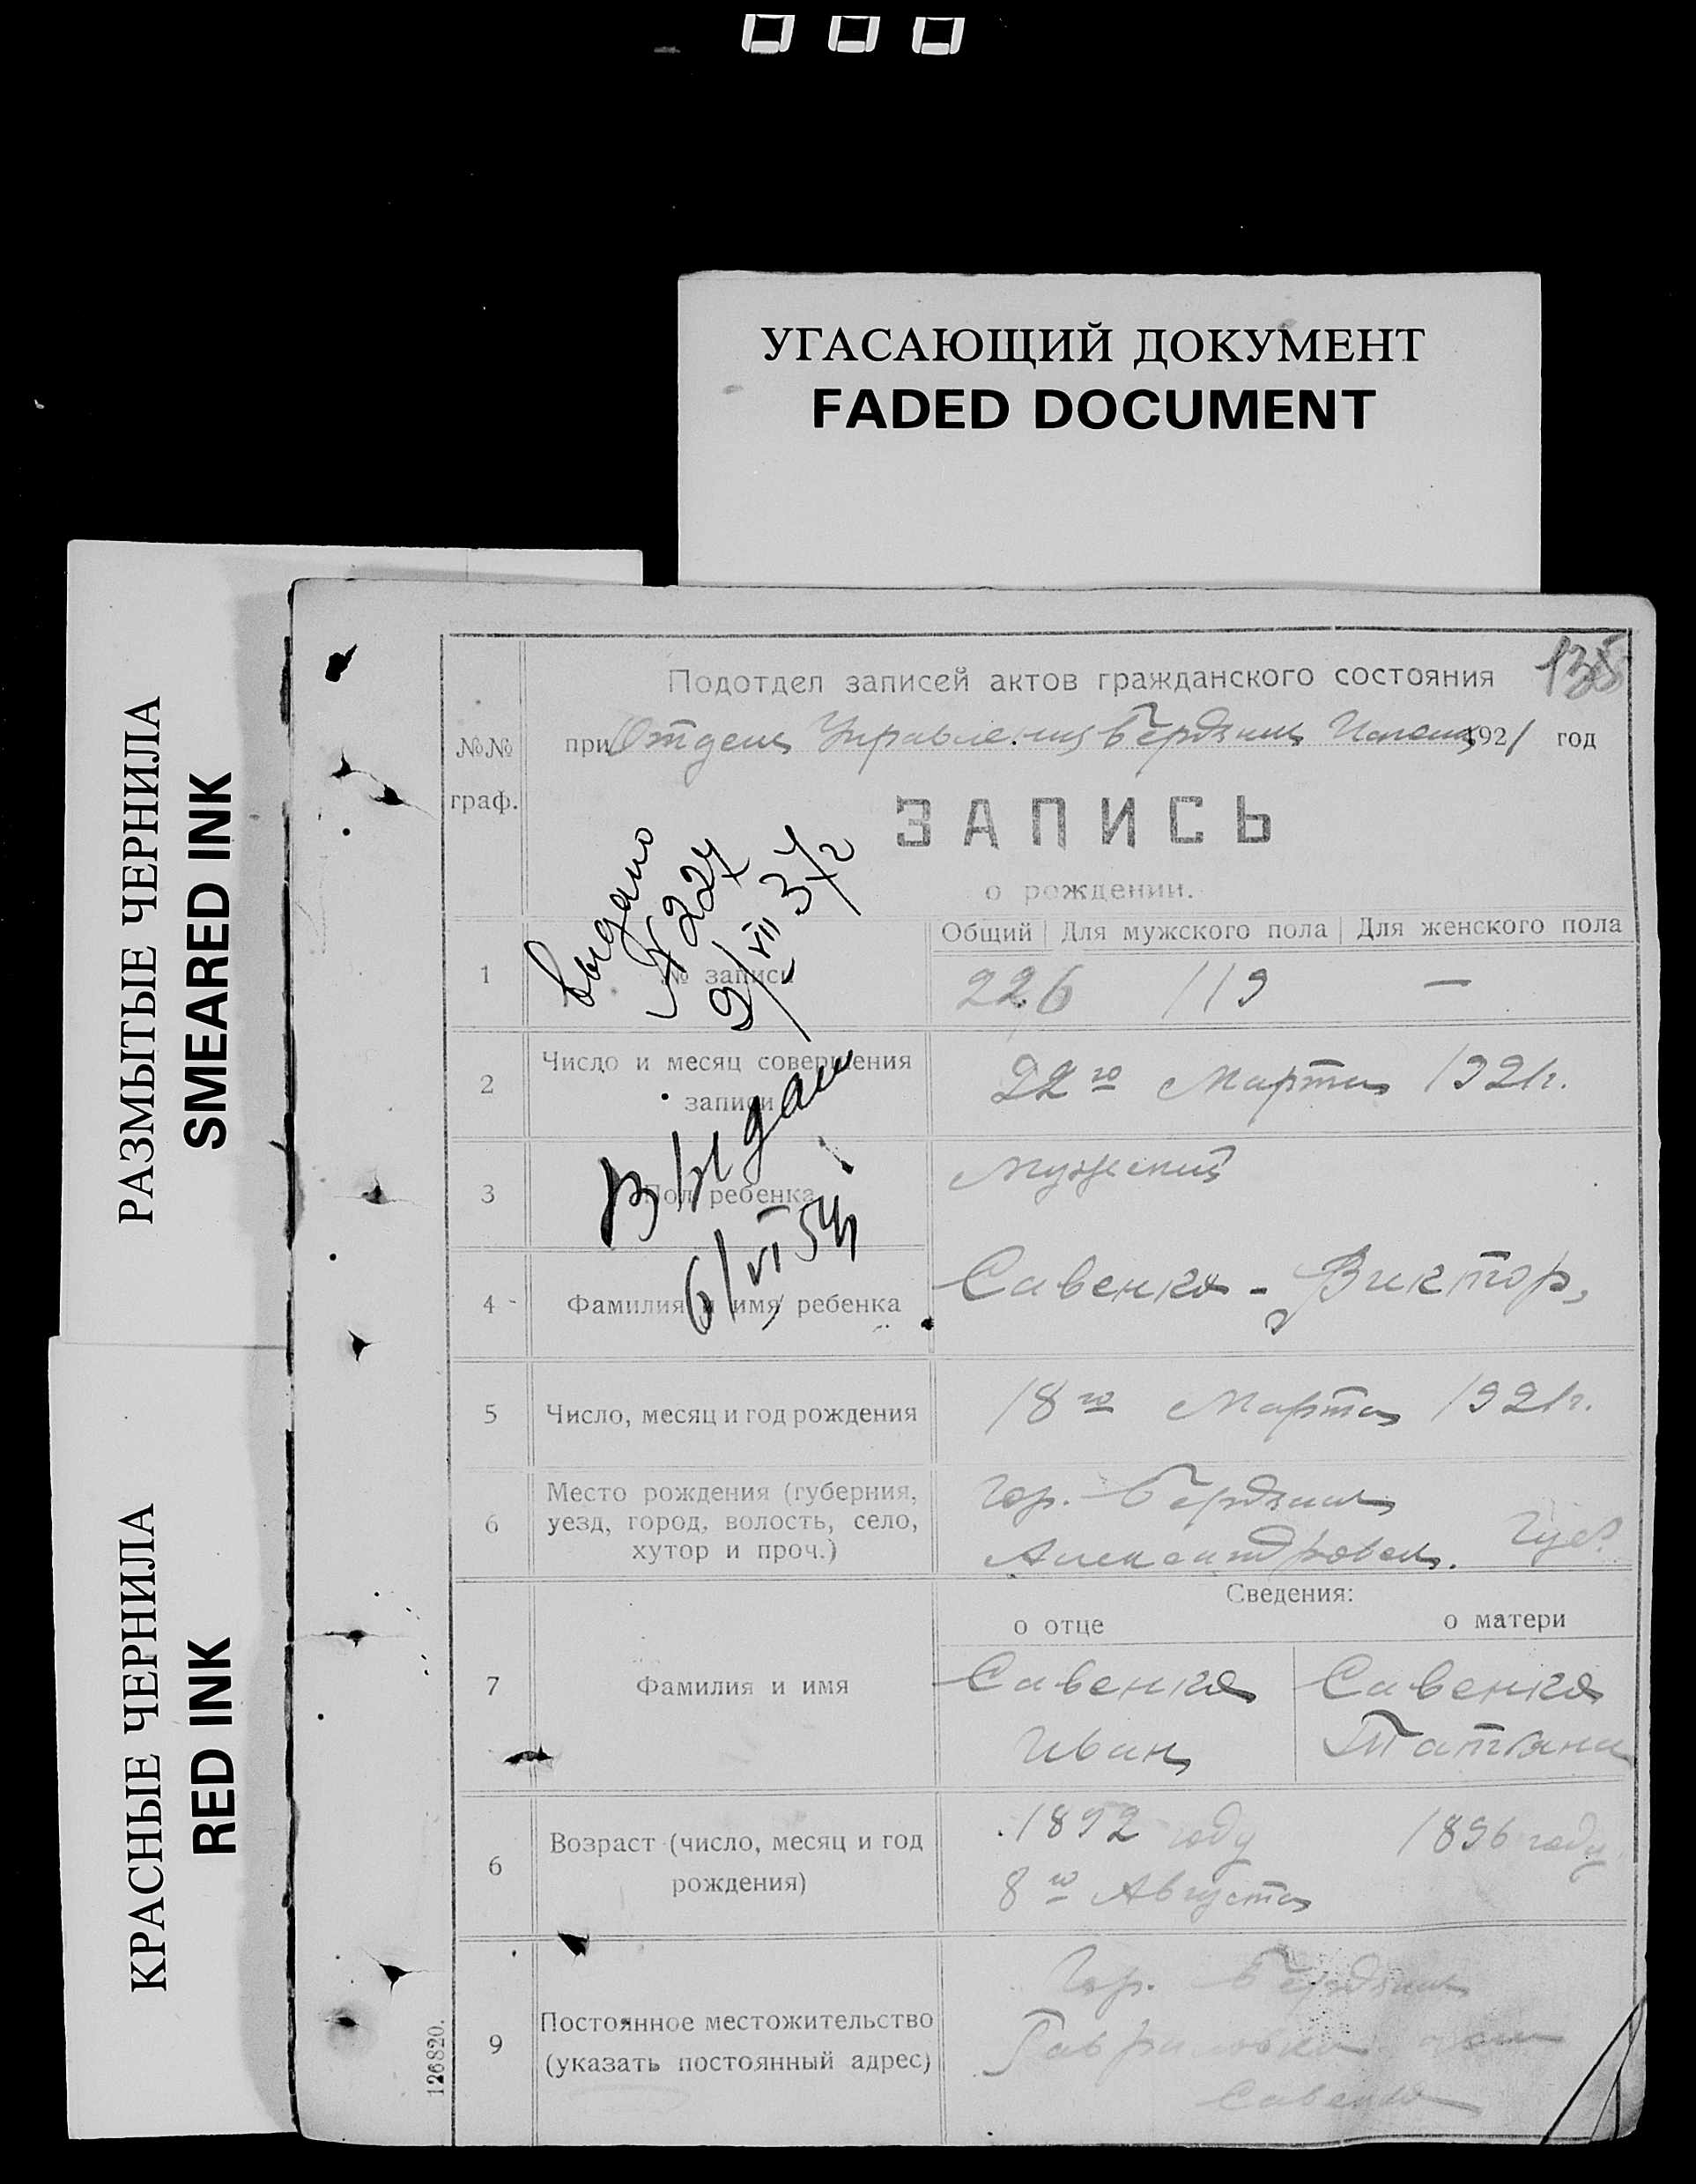 УГАСАЮЩИЙ ДОКУМЕНТ
FADED DOCUMENT
РАЗМЫТЫЕ ЧЕРНИЛА
SMEARED INK
КРАСНЫЕ ЧЕРНИЛА
RED INK
135
Подотдел записей актов гражданского состояния
№№ граф.
при Отделе Управления Бердянск 1921 год
ЗАПИСЬ
о рождении.
Общий | Для мужского пола | Для женского пола
1 № записи 226 119 —
выдано
№ 227
9/VII 37
2 Число и месяц совершения записи 22го Марта 1921г.
3 Пол ребенка Мужеский
Выдан
6/VI 54
4 Фамилия и имя ребенка Савенко - Виктор,
5 Число, месяц и год рождения 18го Марта 1921г.
6 Место рождения (губерния,
уезд, город, волость, село,
хутор и проч.)
Гор. Бердянск
Александровск. губ.
Сведения:
о отце о матери
7 Фамилия и имя
Савенко Савенко
Иван Татьяна
6 Возраст (число, месяц и год
рождения)
1892 году 1896 году
8го Августа
9 Постоянное местожительство
(указать постоянный адрес)
Гор. Бердянск
Савенко
126820.